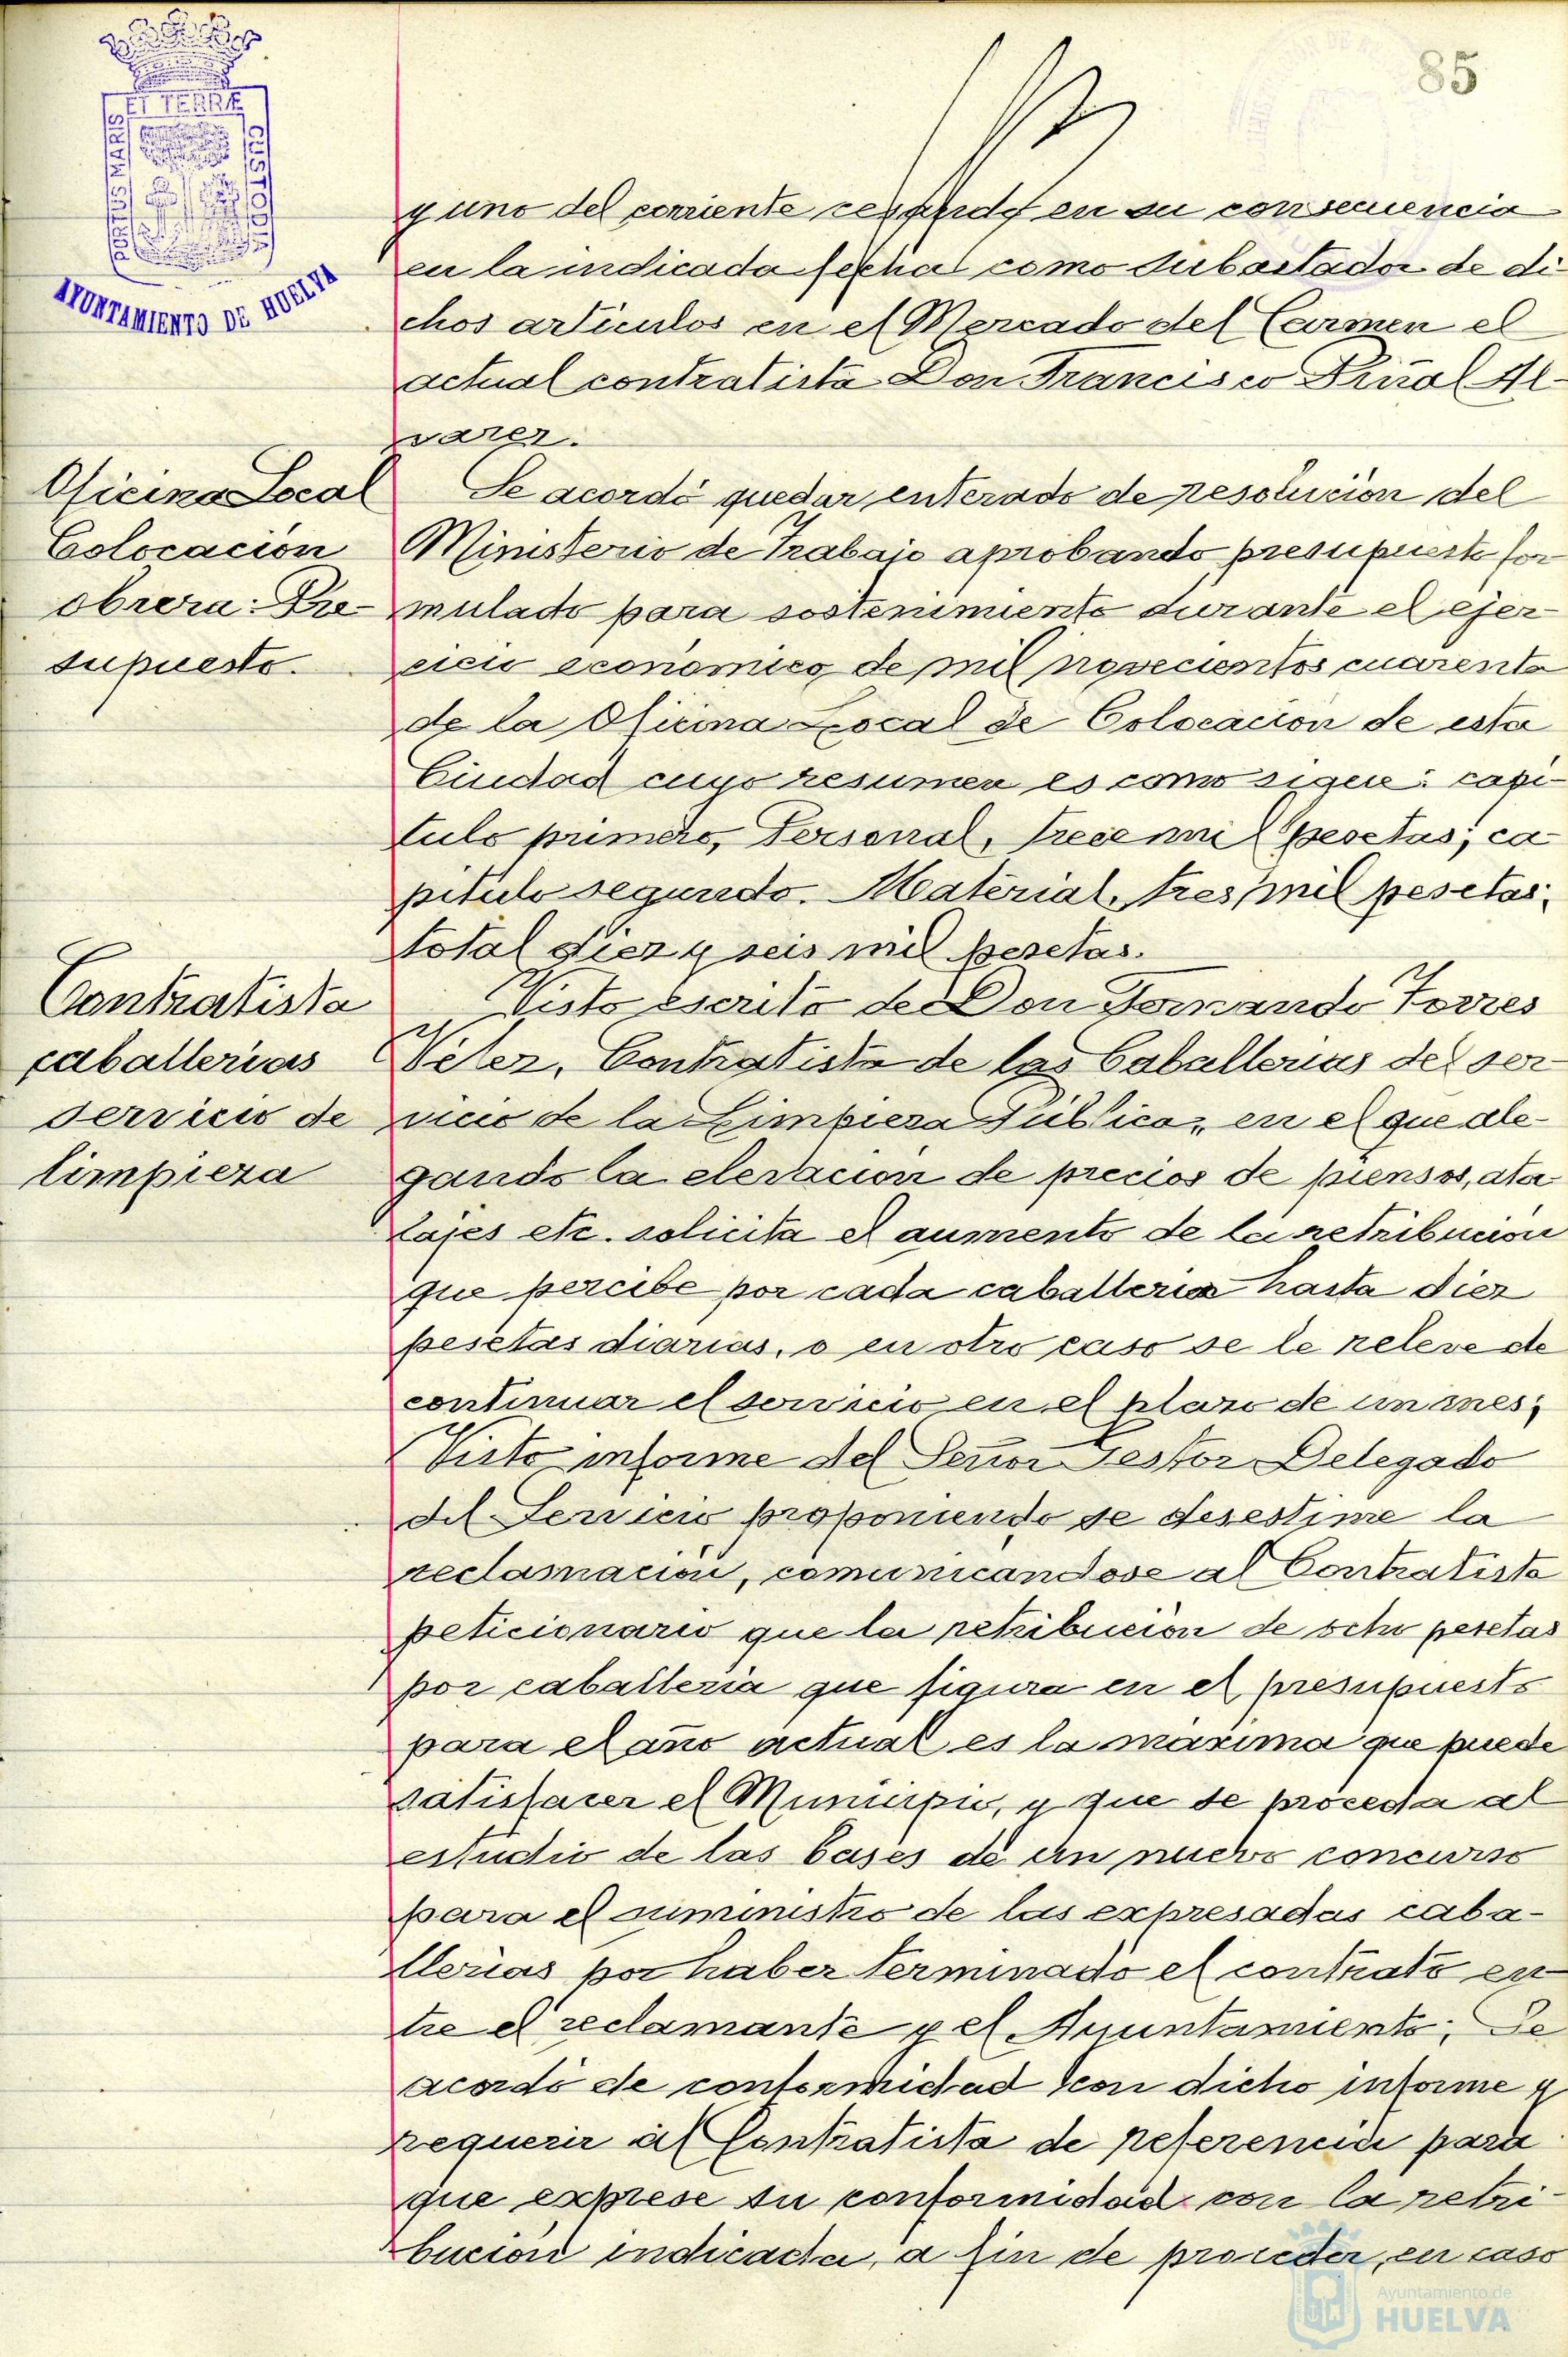 85
ET TERRÆ
AYUNTAMIENTO DE HUELVA
y uno del corriente cesando en su consecuencia
en la indicada fecha como subastador de di
chos articulos en el Mercado del Carmen el
actual contratista Don Francisco Al-
varez.
Oficina Local
Colocacion
obrera: Pre-
supuesto.
Se acordó quedar enterado de resolucion del
Ministerio de Trabajo aprobando presupuesto for
mulado para sostenimiento durante el ejer-
cicio economico de mil novecientos cuarenta
de la Oficina Local de Colocacion de esta
Ciudad cuyo resumen es como sigue: capi-
tulo primero, Personal, trece mil pesetas; ca
pitulo segundo. Material, tres mil pesetas,
total diez y seis mil pesetas.
Contratista
caballerias
servicio de
limpieza
Visto escrito de Don Fernando Torres
Velez, Contratista de las Caballerias del ser
vicio de la Limpieza Publica, en el que ale-
gando la elevacion de precios de piensos, ata
lajes etc. solicita el aumento de la retribucion
que percibe por cada caballeria hasta diez
pesetas diarias, o en otro caso se le releve de
continuar el servicio en el plazo de un mes;
Visto informe del Señor Gestor Delegado
del Servicio proponiendo se desestime la
reclamacion, comunicandose al Contratista
peticionario que la retribucion de ocho pesetas
por caballeria que figura en el presupuesto
para el año actual es la maxima que puede
satisfacer el Municipio, y que se proceda al
estudio de las bases de un nuevo concurso
para el suministro de las expresadas caba-
llerias por haber terminado el contrato en
tre el reclamante y el Ayuntamiento; Se
acordó de conformidad con dicho informe y
requerir al Contratista de referencia para
que exprese su conformidad con la retri-
bucion indicada, a fin de proceder, en caso
Ayuntamiento de
HUELVA